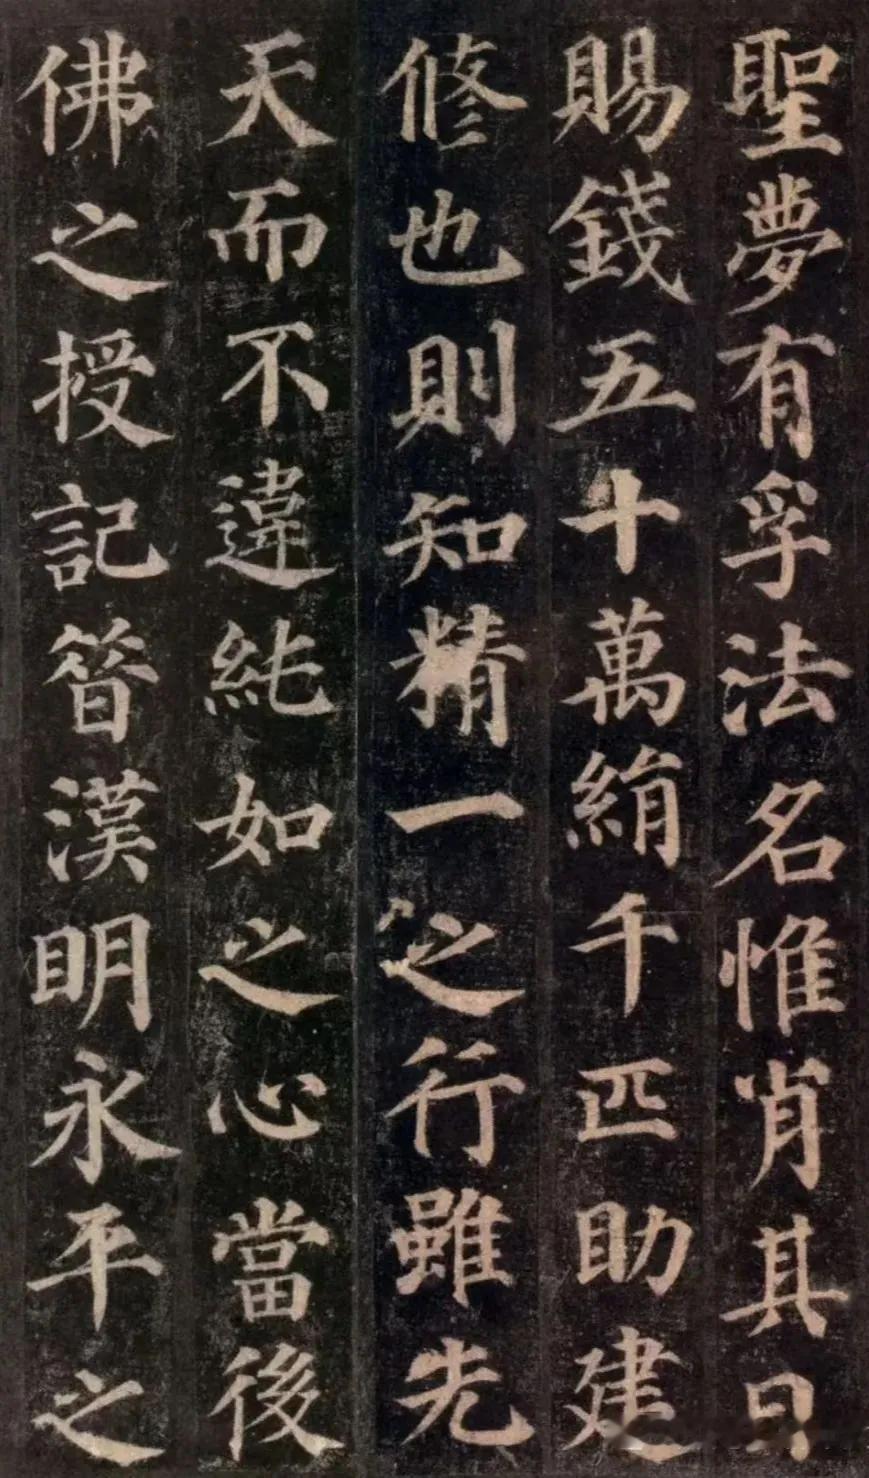 聖夢有孚法名惟肖其日
賜錢五十萬絹千匹助建
修也則知精一之行雖先
天而不違純如之心當後
佛之授記昔漢明永平之